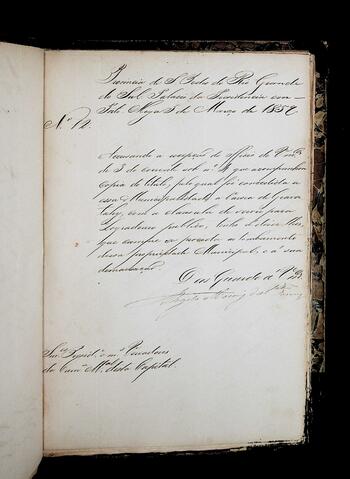 Provincia de S. Pedro do Rio Grande
do Sul Palacio da Presidencia em
Porto Alegre 5 de Março de 1857
N.º 12.
Accusando a recepção do officio de V. m.ces
de 3 do corrente sob n.º 4 que acompanhou
copia do titulo, pelo qual foi concedida a
essa Municipalidade a Varzea de Grava
tahy, com a clausula de servir para
Logradouro publico, tenho a dizer-lhes,
que cumpre se proceda ao tombamento
dessa propriedade Municipal, e a sua
demarcação.
Deos Guarde a V. m.ces
Snr.es Presid.e e m.s Vereadores
da Cam.ª M.al desta Capital.